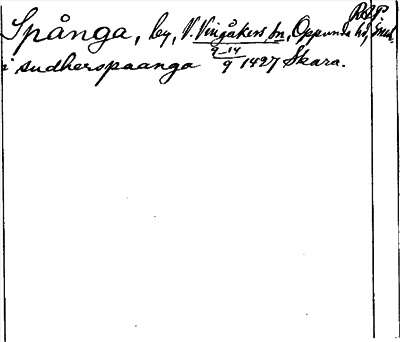 RAP.
Spånga, by, V. Vingåkers sn, Oppunda hd,
i sudherspaanga 9-14/9 1427 Skara.